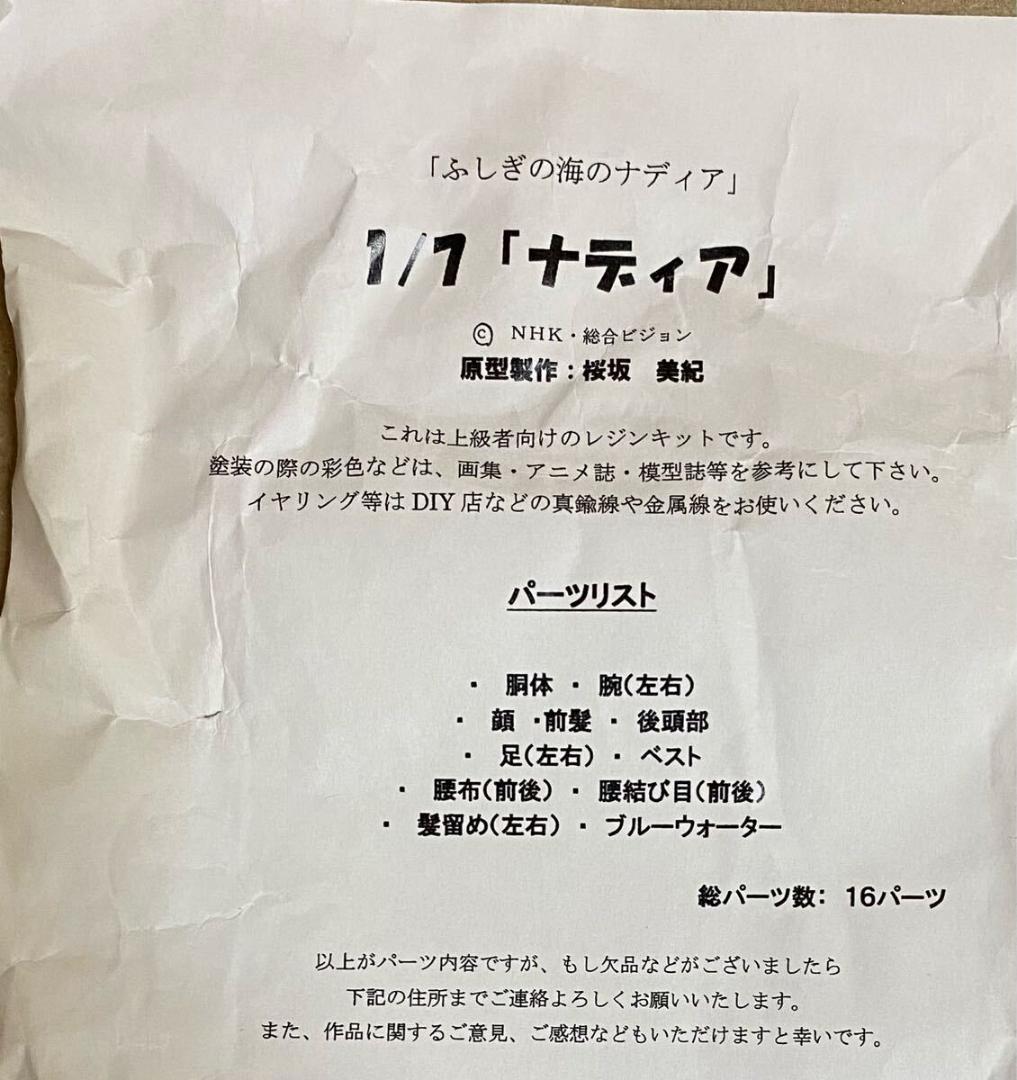 「ふしぎの海のナディア」
1/7「ナディア」
© NHK・総合ビジョン
原型製作：桜坂　美紀
これは上級者向けのレジンキットです。
塗装の際の彩色などは、画集・アニメ誌・模型誌等を参考にして下さい。
イヤリング等は DIY 店などの真鍮線や金属線をお使いください。
パーツリスト
・ 胴体 ・ 腕(左右)
・ 顔 ・前髪 ・ 後頭部
・ 足(左右) ・ ベスト
・ 腰布(前後) ・ 腰結び目(前後)
・ 髪留め(左右) ・ ブルーウォーター
総パーツ数： 16パーツ
以上がパーツ内容ですが、もし欠品などがございましたら
下記の住所までご連絡よろしくお願いいたします。
また、作品に関するご意見、ご感想などもいただけますと幸いです。